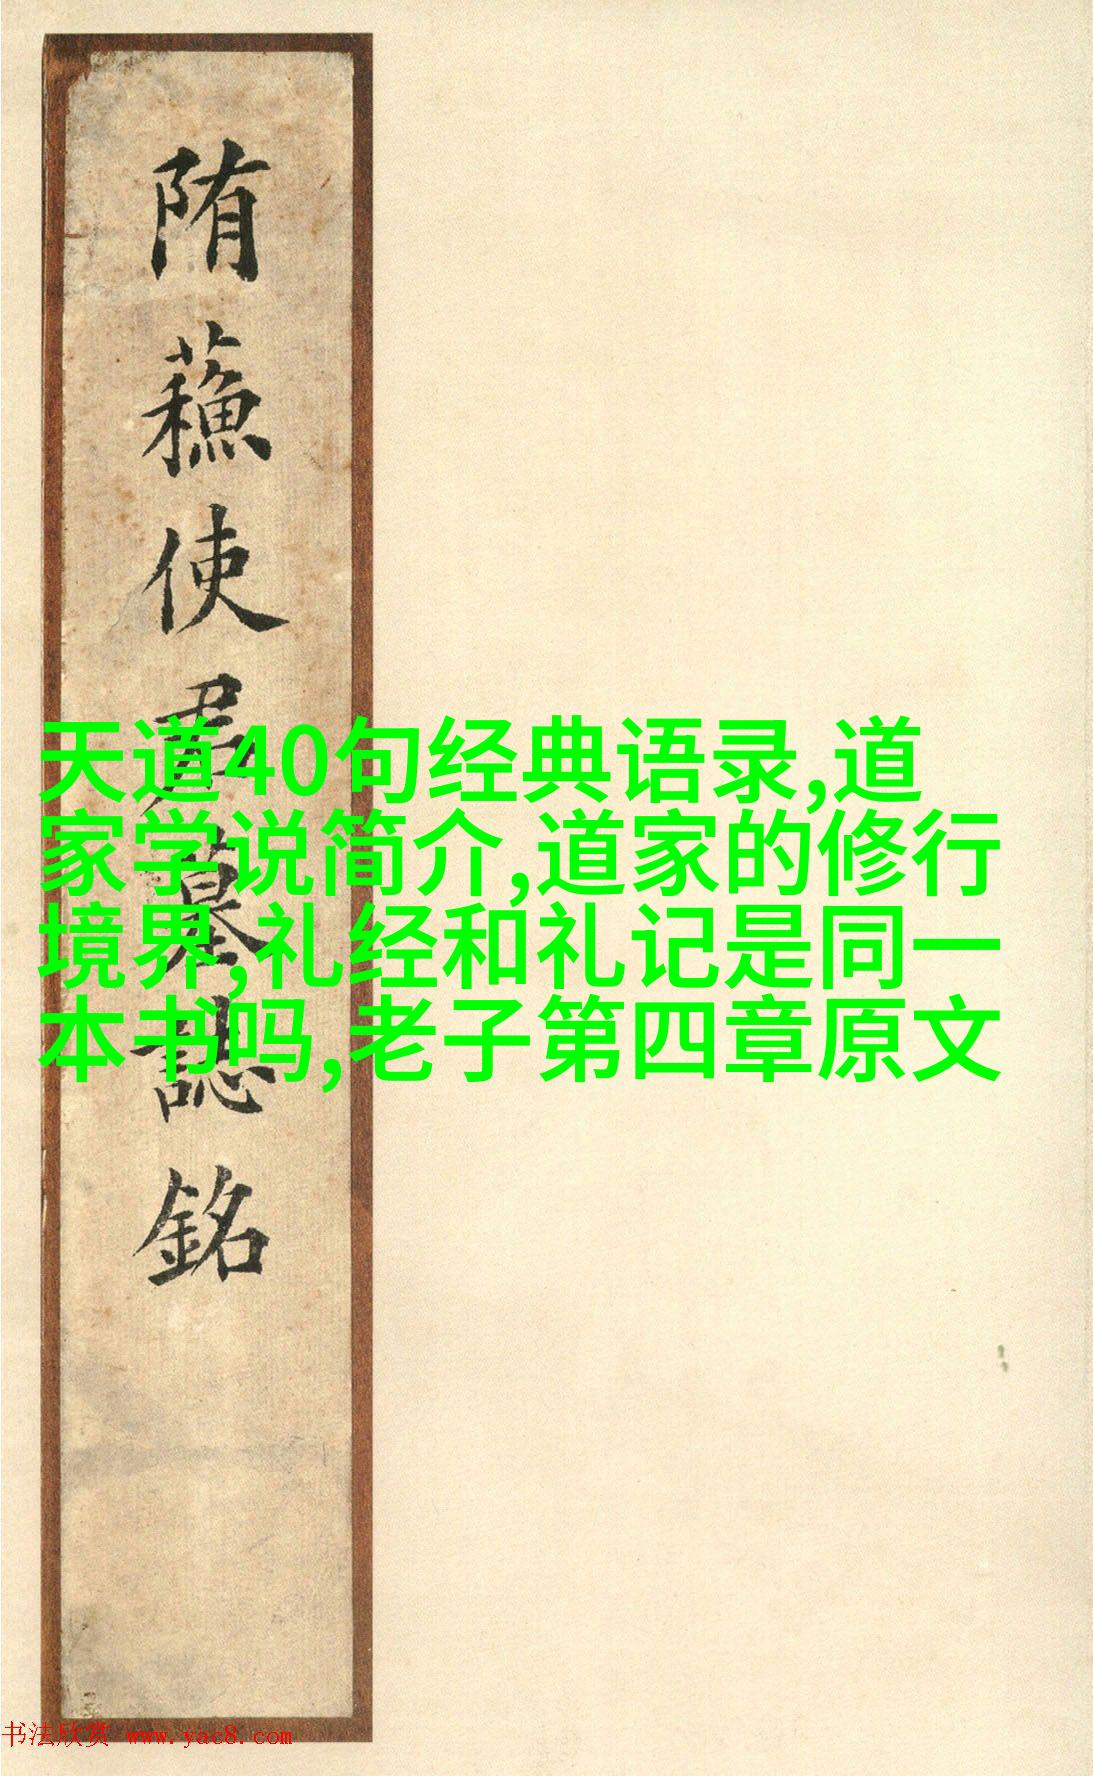 隋蘓使君墓誌銘
天道40句经典语录,道
家学说简介,道家的修行
境界,礼经和礼记是同一
本书吗,老子第四章原文
书法欣赏 www.yac8.com